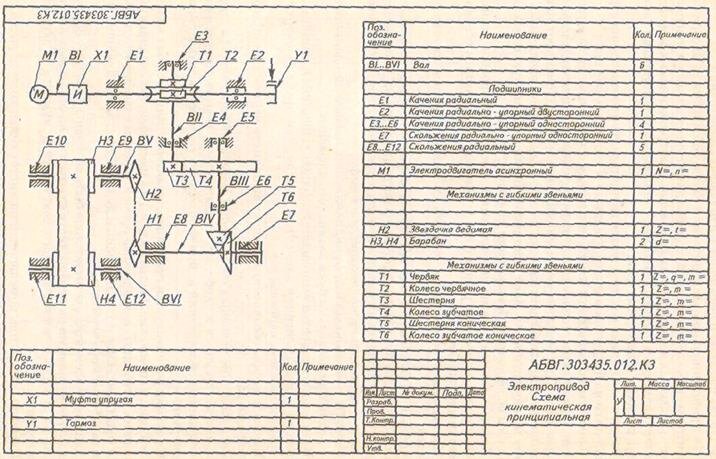 АБВГ.303435.012.К3
E3
M1 BI X1 E1 T1 T2 E2 Y1
М И
BII E4 E5
E10 H3 E9 BV
T3 T4 BIII E6
T5
T6
H2
H1 E8 BIV E7
E11 H4 E12 BVI
Поз. обозна-чение Наименование Кол. Примечание
BI...BVI Вал 6
Подшипники
E1 Качения радиальный 1
E2 Качения радиально - упорный двусторонний 1
E3...E6 Качения радиально - упорный односторонний 4
E7 Скольжения радиально - упорный односторонний 1
E8...E12 Скольжения радиальный 5
M1 Электродвигатель асинхронный 1 N=, n=
Механизмы с гибкими звеньями
H2 Звездочка ведимая 1 Z=, t=
H3, H4 Барабан 2 d=
Механизмы с гибкими звеньями
T1 Червяк 1 Z=, q=, m=
T2 Колесо червячное 1 Z=, m=
T3 Шестерня 1 Z=, m=
T4 Колесо зубчатое 1 Z=, m=
T5 Шестерня коническая 1 Z=, m=
T6 Колесо зубчатое коническое 1 Z=, m=
Поз. обозна-чение Наименование Кол. Примечание
X1 Муфта упругая 1
Y1 Тормоз 1
АБВГ.303435.012.К3
Изм. Лист № докум. Подп. Дата
Разраб.
Пров.
Т.Контр.
Н.контр.
Утв.
Электропривод
Схема
кинематическая
принципиальная
Лит. Масса Масштаб
У
Лист Листов